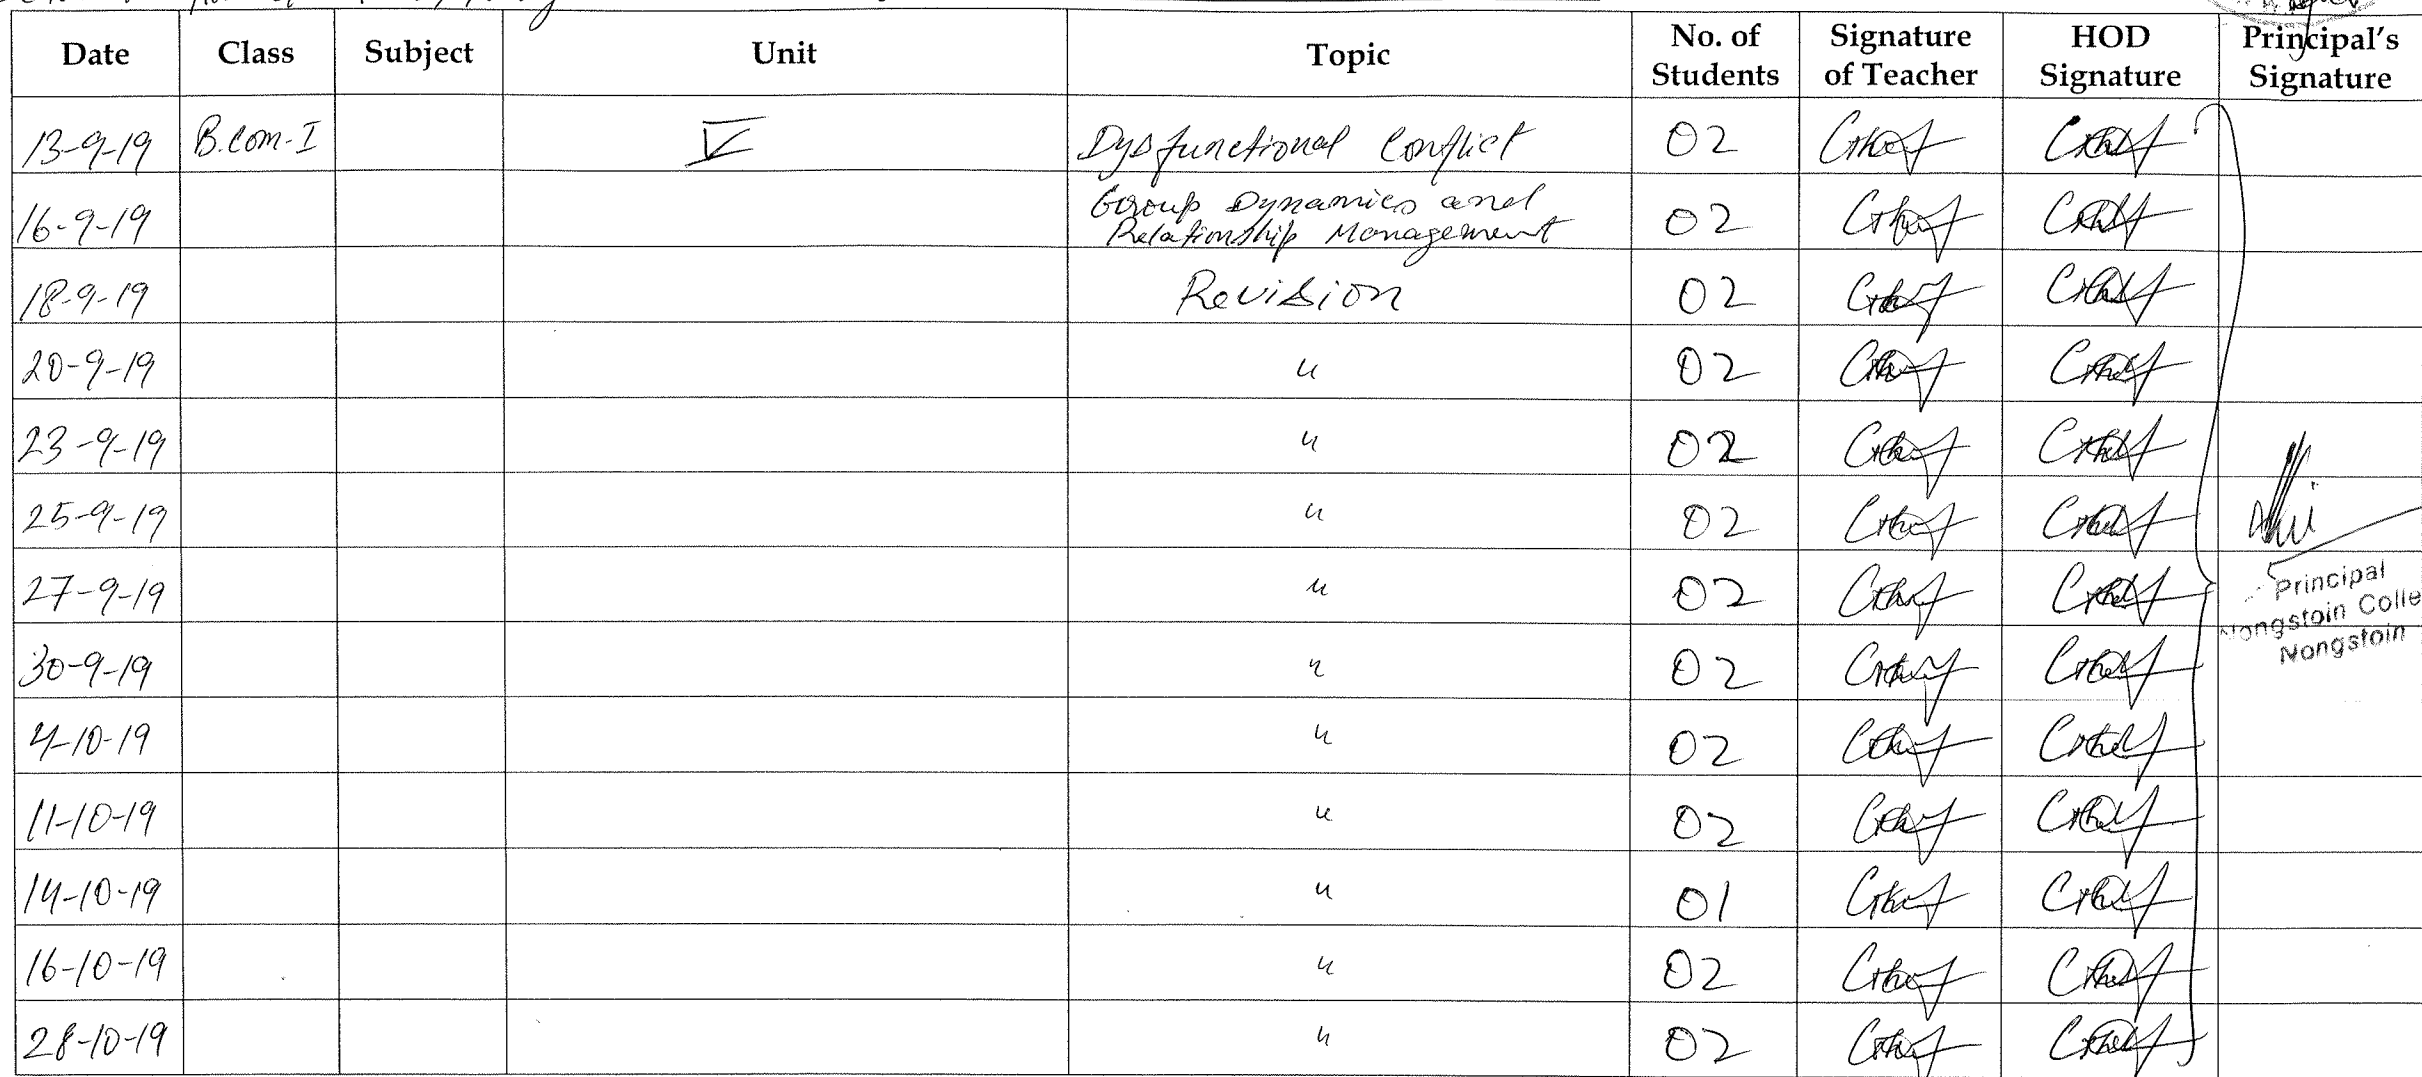 Date Class Subject Unit Topic No. of Students Signature of Teacher HOD Signature Principal's Signature
13-9-19 B.Com-I V Dysfunctional Conflict 02
16-9-19 Group Dynamics and Relationship Management 02
18-9-19 Revision 02
20-9-19 " 02
23-9-19 " 02
25-9-19 " 02
27-9-19 " 02
Principal
Nongstoin Colle
Nongstoin
30-9-19 " 02
4-10-19 " 02
11-10-19 " 02
14-10-19 " 01
16-10-19 " 02
28-10-19 " 02